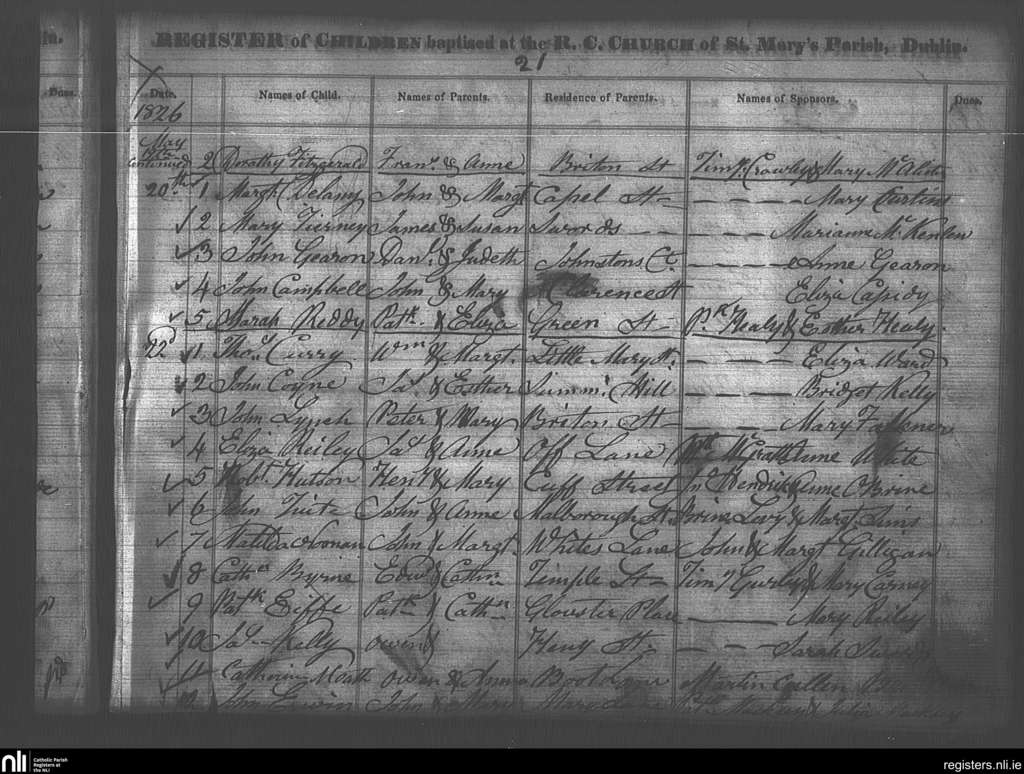 in.
REGISTER of CHILDREN baptised at the R. C. CHURCH of St. Mary's Parish, Dublin.
21
Dues. Date. Names of Child. Names of Parents. Residence of Parents. Names of Sponsors. Dues.
1826
May
continued 2 Dorothy Fitzgerald Frans. & Anne Briton St Timy. Crowley & Mary
20th 1 Margt Delany John & Margt Capel St Mary Curtins
2 Mary Tierney James & Susan Swords Marianne
3 John Gearon Danl. & Judeth Johnstons Ct. Anne Gearon
4 John Campbell John & Mary Clarence St Eliza Casidy
5 Marah Reddy Patk. & Eliza Green St Pk Healy & Esther Healy.
22d 1 Thos. Curry Wm & Margt. Little Mary St. Eliza Ward
2 John Coyne Jas. & Esther Summr. Hill Bridget Kelly
3 John Lynch Peter & Mary Briton St Mary Falkner
4 Eliza Reiley Jas. & Anne Off Lane Anne White
5 Robt. Hutson Henr & Mary Cuff Street Jn Hendrik & Anne OBrine
6 John Tuite John & Anne Malborough St Brine Levy & Margt.
7 Matilda Noonan John & Margt. Whites Lane John & Margt Gilligan
8 Cathn Byrne Edwd & Cathn Temple St Timy Gurley & Mary Carney
9 Patk Eiffe Patk & Cathn Glouster Place Mary Reiley
10 Jas. Kelly Owen & Henry St. Sarah
11 Catherine Owen & Boot Lane Martin Cullen
12 John John & Mary Mary Lane
nli Catholic Parish
Registers at
the NLI
registers.nli.ie